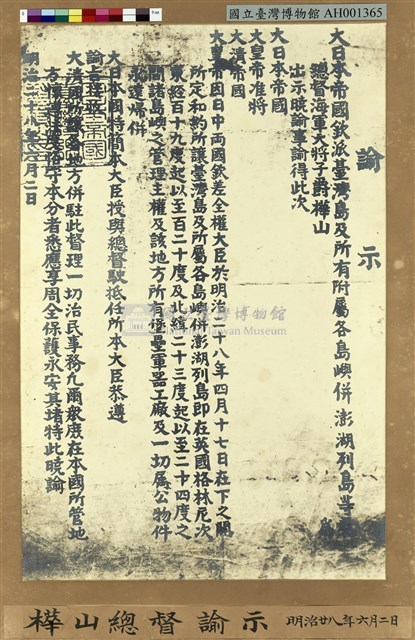 國立臺灣博物館 AH001365
諭示
大日本帝國欽派臺灣島及所有附屬各島嶼併澎湖列島等
總督海軍大將子爵樺山
出示曉諭事諭得此次
大日本帝國
大皇帝准將
大清帝國
大皇帝因日中両國欽差全權大臣於明治二十八年四月十七日在下之關
所定和約所讓臺灣島及所屬各島嶼併澎湖列島即在英國格林尼次
東經百十九度起以至百二十度及北緯二十三度起以至二十四度之
間諸島嶼之管理主權及該地方所有堡壘軍器工廠及一切屬公物件
永遠歸併
大日本國特簡本大臣授與總督駛抵任所本大臣恭遵
諭旨
大清國
各地方併駐此督理一切治民事務凡爾衆庶在本國所管地
方
守本分者悉應享周全保護永安其堵特此曉諭
明治二十八年六月二日
國立臺灣博物館
National Taiwan Museum
樺山總督諭示 明治廿八年六月二日